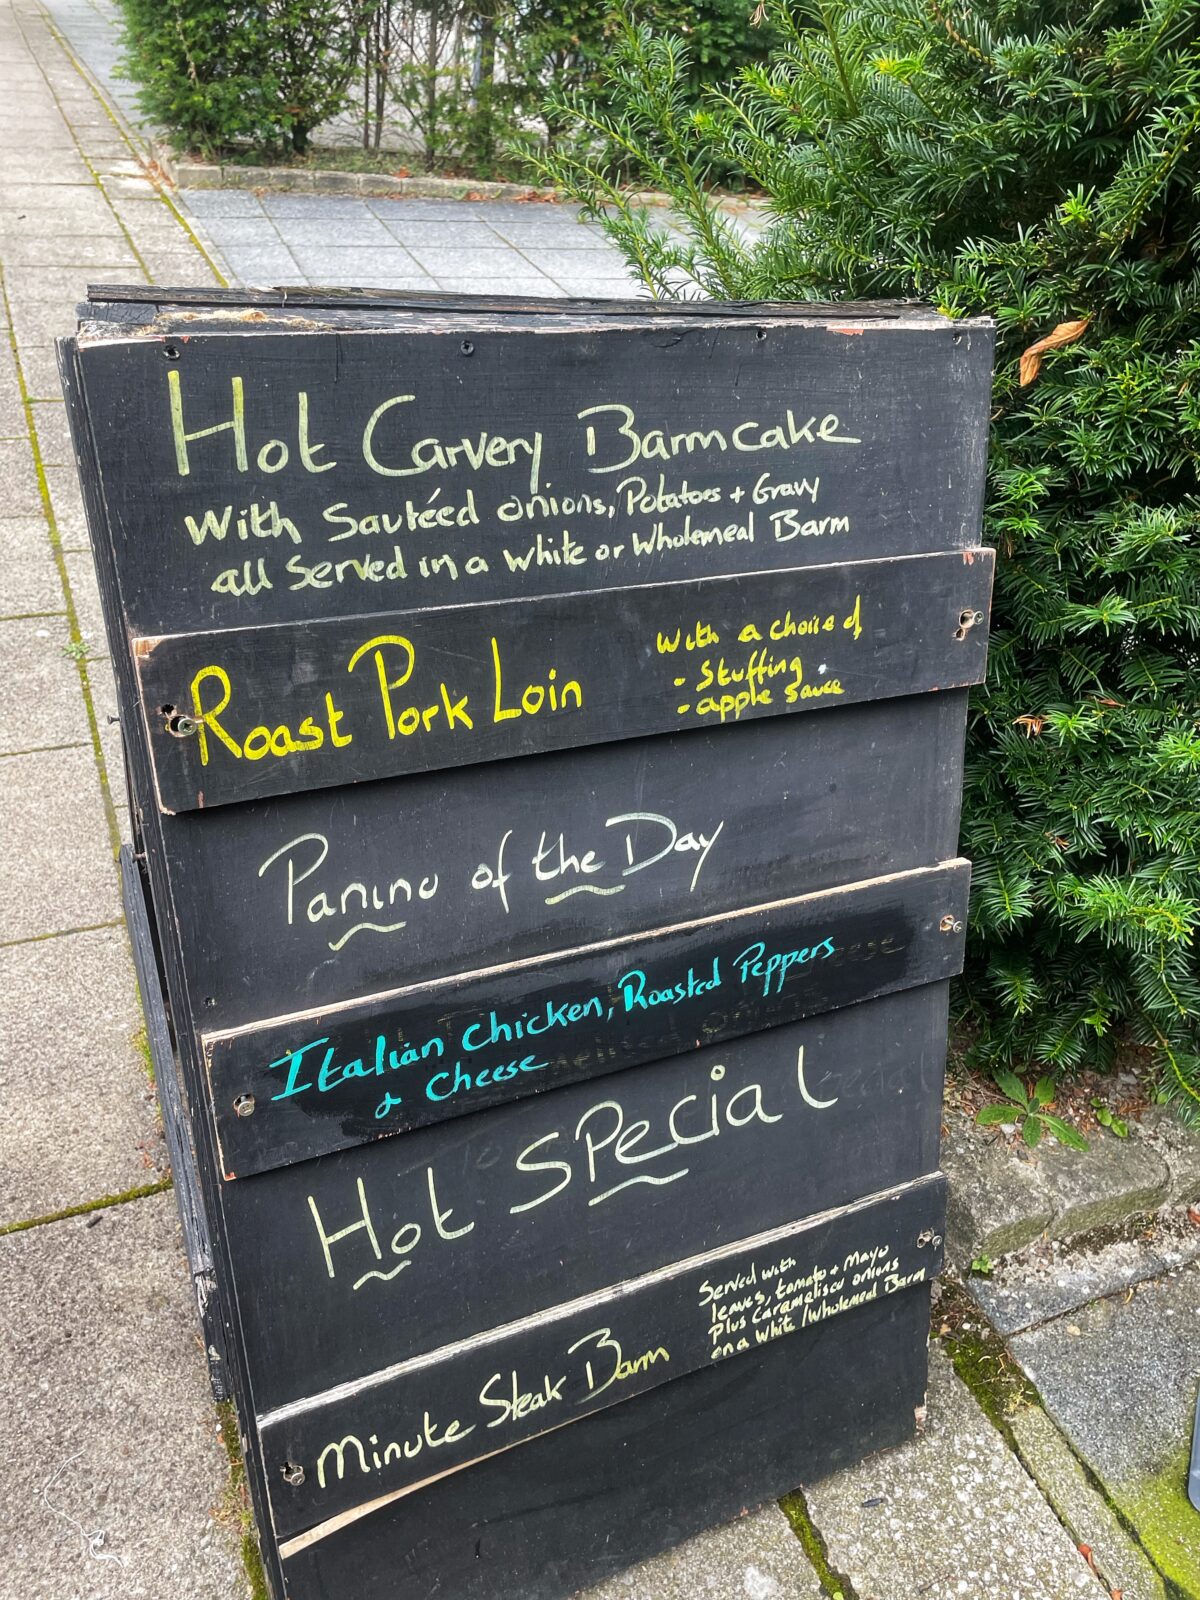 Hot Carvery Barmcake
with Sautéed onions, Potatoes + Gravy
all served in a white or Wholemeal Barm
Roast Pork Loin
with a choice of
- Stuffing
- apple sauce
Panino of the Day
Italian Chicken, Roasted Peppers
& Cheese
Hot SPecial
Minute Steak Barm
Served with
leaves, tomato + Mayo
Plus Caramelised onions
on a White / Wholemeal Barm